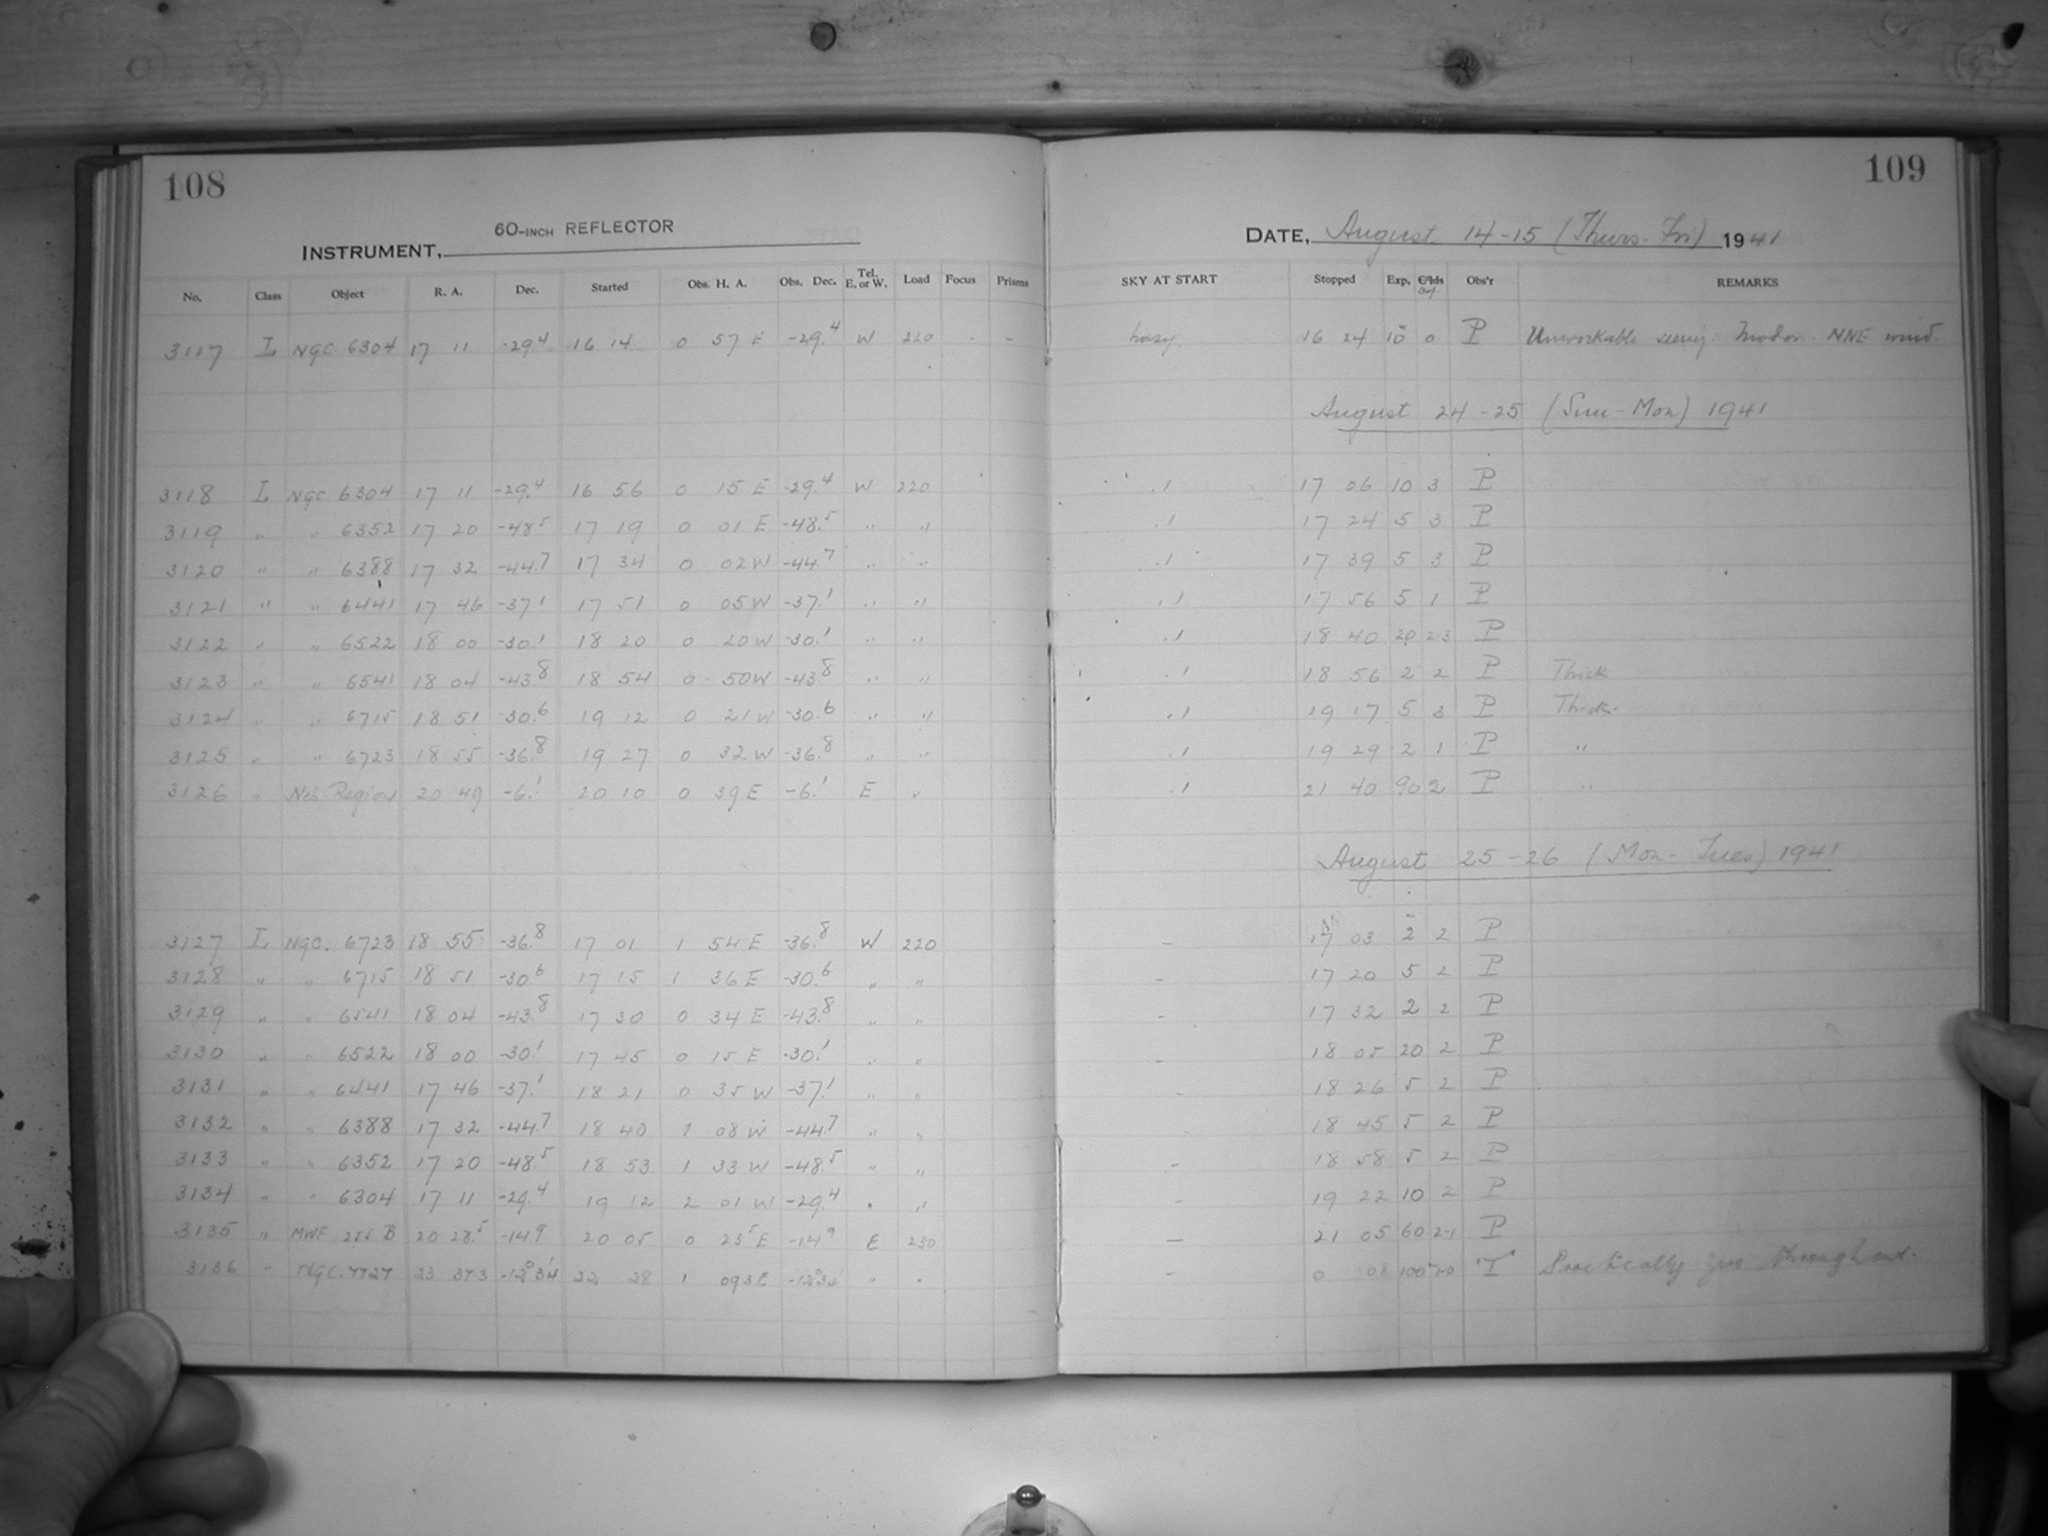 108
109
INSTRUMENT, 60-INCH REFLECTOR
DATE, August 14-15 (Thurs-Fri) 1941
No. Class Object R. A. Dec. Started Obs. H. A. Obs. Dec. Tel. E. or W. Load Focus Prisms SKY AT START Stopped Exp. Obs'r REMARKS
3117 L NGC 6304 17 11 -29.4 16 14 0 57 E -29.4 W 220 - - hazy 16 24 10 0 P Unworkable seeing NNE wind.
August 24-25 (Sun-Mon) 1941
3118 L NGC 6304 17 11 -29.4 16 56 0 15 E -29.4 W 220 .1 17 06 10 3 P
3119 " " 6352 17 20 -48.5 17 19 0 01 E -48.5 " " .1 17 24 5 3 P
3120 " " 6388 17 32 -44.7 17 34 0 02 W -44.7 " " .1 17 39 5 3 P
3121 " " 6441 17 46 -37.1 17 51 0 05 W -37.1 " " .1 17 56 5 1 P
3122 " " 6522 18 00 -30.1 18 20 0 20 W -30.1 " " .1 18 40 20 2-3 P
3123 " " 6541 18 04 -43.8 18 54 0 50 W -43.8 " " .1 18 56 2 2 P Thick
3124 " " 6715 18 51 -30.6 19 12 0 21 W -30.6 " " .1 19 17 5 3 P Thick.
3125 " " 6723 18 55 -36.8 19 27 0 32 W -36.8 " " .1 19 29 2 1 P "
3126 " Neb Region 20 49 -6.1 20 10 0 39 E -6.1 E " .1 21 40 90 2 P "
August 25-26 (Mon-Tues) 1941
3127 L NGC. 6723 18 55 -36.8 17 01 1 54 E -36.8 W 220 - 17 03 2 2 P
3128 " " 6715 18 51 -30.6 17 15 1 36 E -30.6 " " - 17 20 5 2 P
3129 " " 6541 18 04 -43.8 17 30 0 34 E -43.8 " " - 17 32 2 2 P
3130 " " 6522 18 00 -30.1 17 45 0 15 E -30.1 " " - 18 05 20 2 P
3131 " " 6441 17 46 -37.1 18 21 0 35 W -37.1 " " - 18 26 5 2 P
3132 " " 6388 17 32 -44.7 18 40 1 08 W -44.7 " " - 18 45 5 2 P
3133 " " 6352 17 20 -48.5 18 53 1 33 W -48.5 " " - 18 58 5 2 P
3134 " " 6304 17 11 -29.4 19 12 2 01 W -29.4 " " - 19 22 10 2 P
3135 " MWF 255 B 20 28.5 -14.9 20 05 0 23.5 E -14.9 E 230 - 21 05 60 2-1 P
3136 - NGC. 7727 23 37.3 -12°34' 22 28 1 09.3 E -12°34' " " - 0 08 100 T Practically throughout.